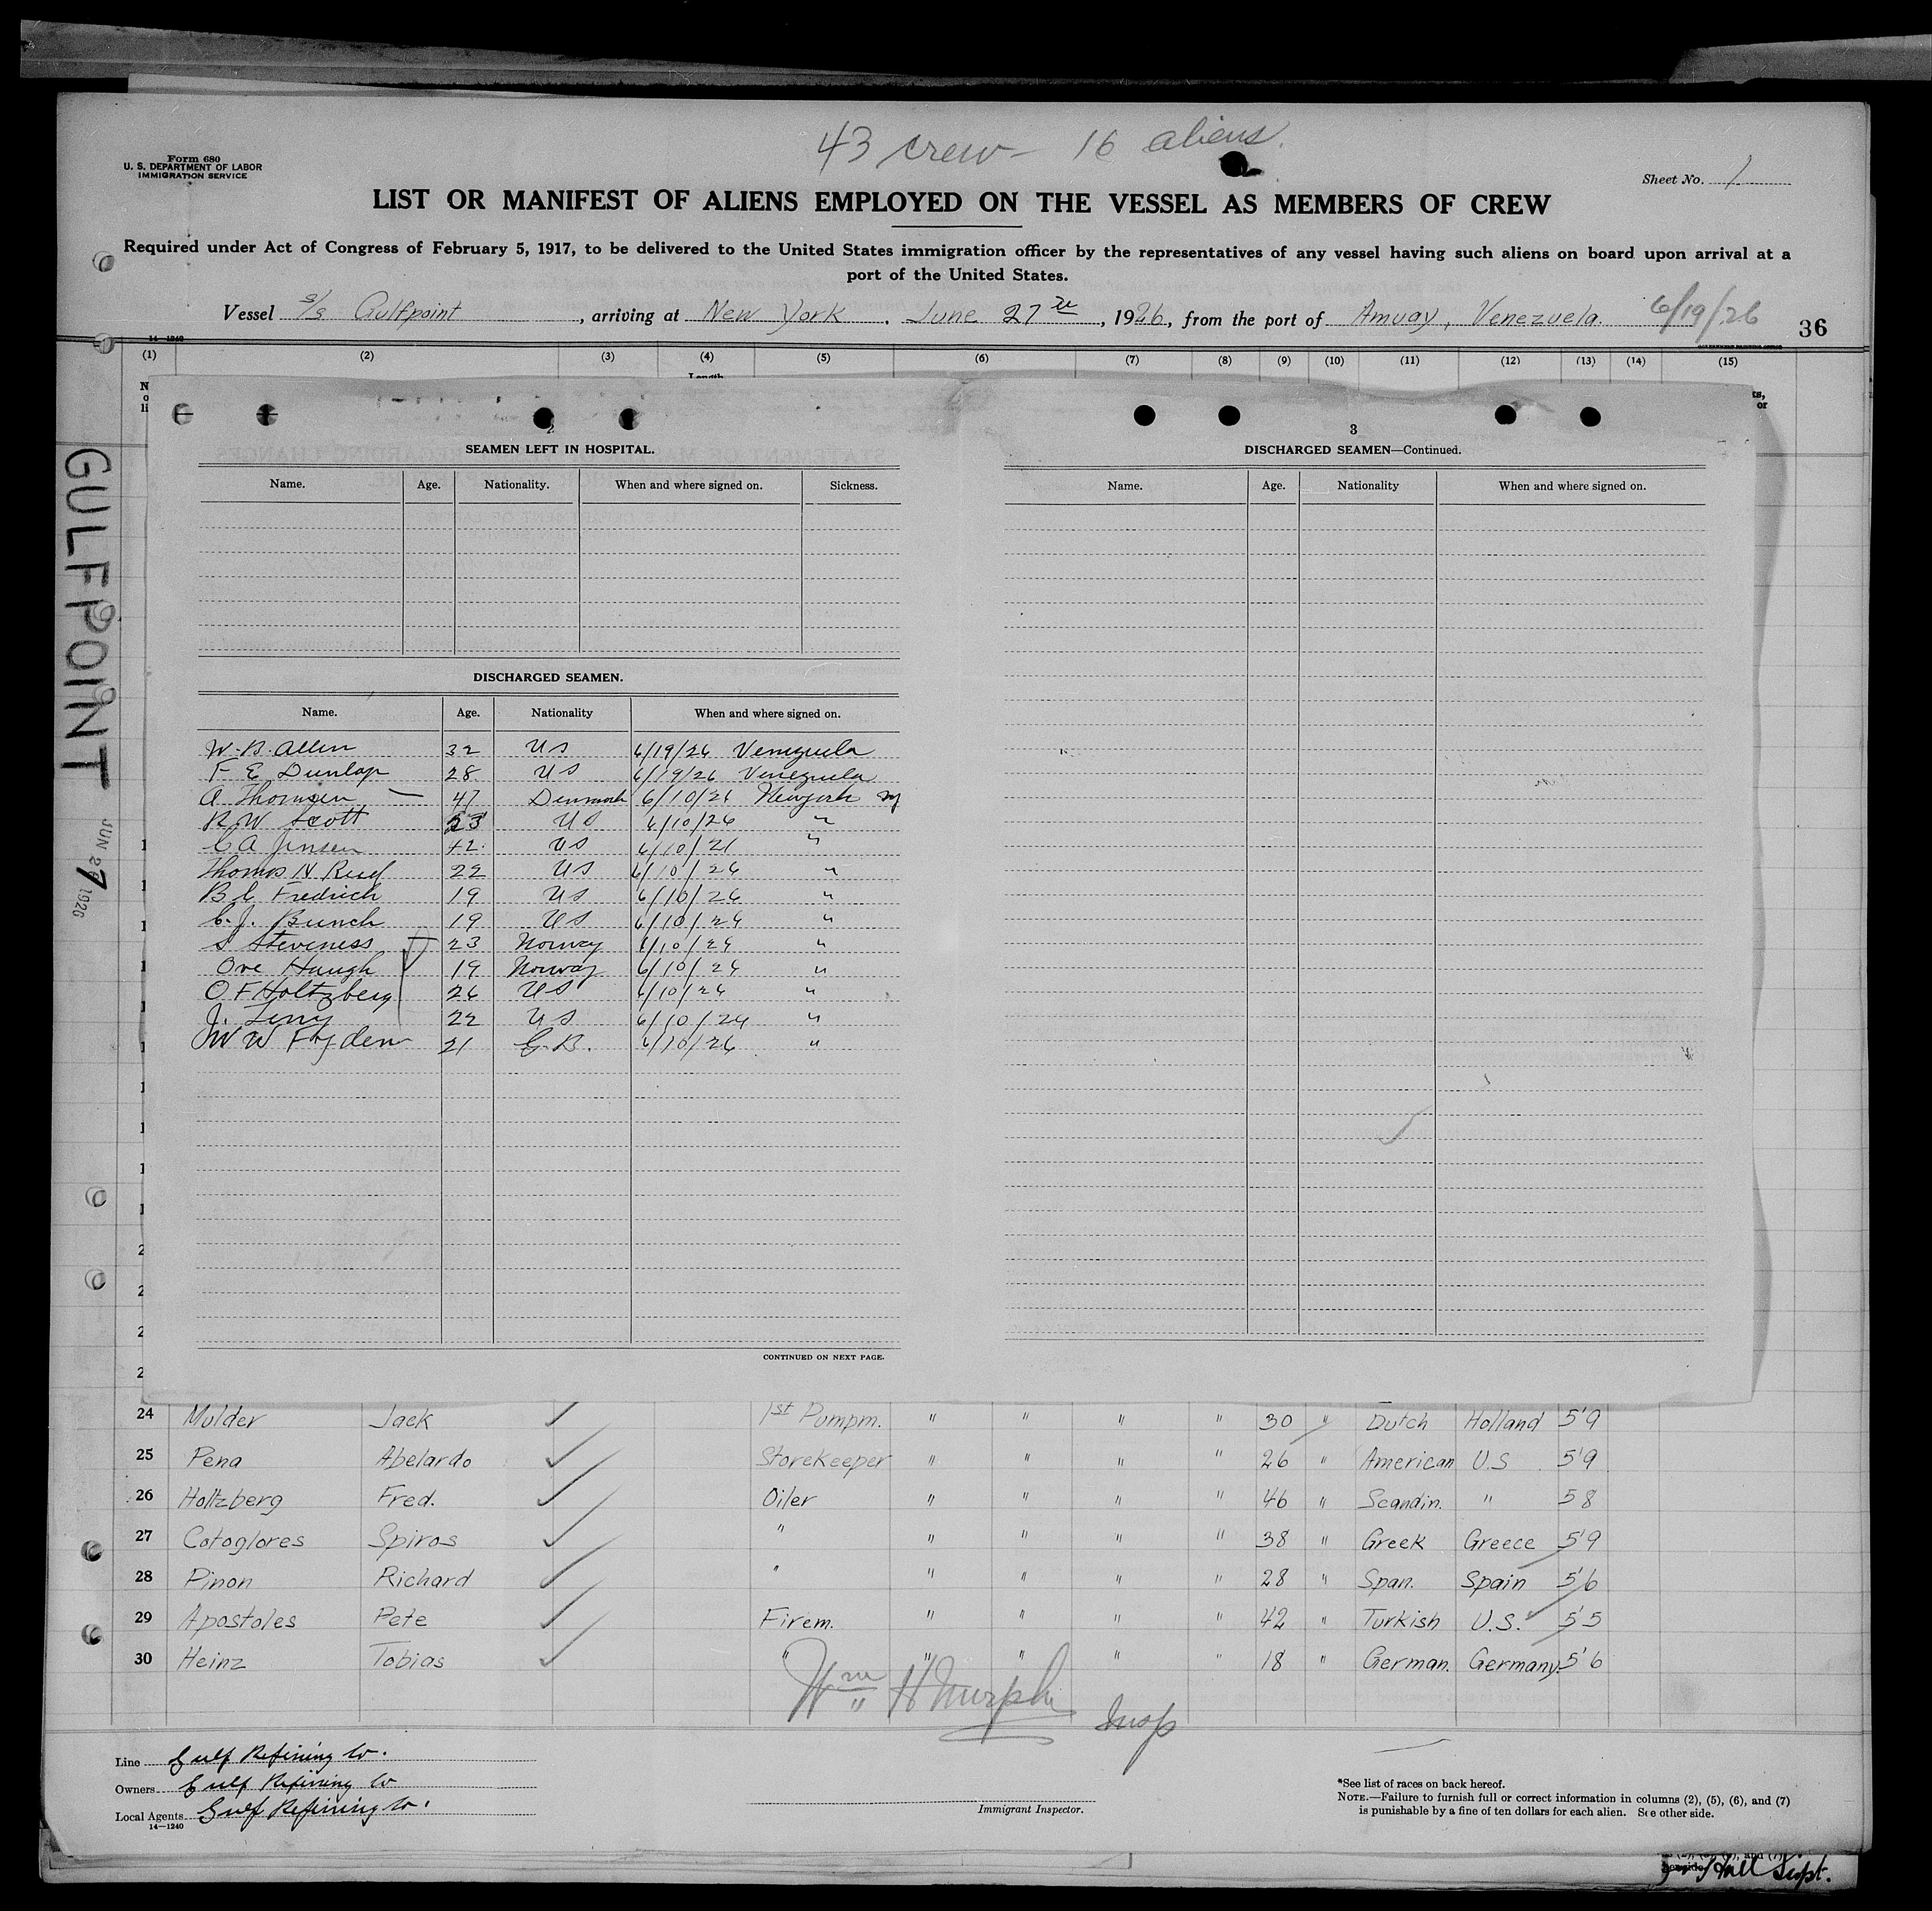 43 crew - 16 aliens.
Form 680
U. S. DEPARTMENT OF LABOR
IMMIGRATION SERVICE
Sheet No. 1
LIST OR MANIFEST OF ALIENS EMPLOYED ON THE VESSEL AS MEMBERS OF CREW
Required under Act of Congress of February 5, 1917, to be delivered to the United States immigration officer by the representatives of any vessel having such aliens on board upon arrival at a
port of the United States.
Vessel s/s Gulfpoint, arriving at New York, June 27, 1926, from the port of Amuay, Venezuela. 6/19/26
36
14-1240
(1) (2) (3) (4) (5) (6) (7) (8) (9) (10) (11) (12) (13) (14) (15)
GULFPOINT
JUN 27 1926
2
SEAMEN LEFT IN HOSPITAL.
Name. Age. Nationality. When and where signed on. Sickness.
DISCHARGED SEAMEN.
Name. Age. Nationality When and where signed on.
W. B. Allen 32 US 6/19/26 Venezuela
F E Dunlap 28 US 6/19/26 Venezuela
A Thomsen — 47 Denmark 6/10/26 New York NY
R W Scott 23 US 6/10/26 "
C A Jensen 42 US 6/10/26 "
Thomas N Reed 22 US 6/10/26 "
B C Fredrich 19 US 6/10/26 "
C. J. Bunch 19 US 6/10/26 "
S Steveness 23 Norway 6/10/26 "
Ove Haugh 19 Norway 6/10/26 "
O F Holtzberg 26 US 6/10/26 "
J. 22 US 6/10/26 "
W W 21 G. B. 6/10/26 "
CONTINUED ON NEXT PAGE.
3
DISCHARGED SEAMEN—Continued.
Name. Age. Nationality When and where signed on.
24 Mulder Jack 1st Pumpm. " " " " 30 " Dutch Holland 5'9
25 Pena Abelardo Storekeeper " " " " 26 " American U.S 5'9
26 Holtzberg Fred. Oiler " " " " 46 " Scandin. " 5 8
27 Cotoglores Spiros " " " " " 38 " Greek Greece 5'9
28 Pinon Richard " " " " " 28 " Span. Spain 5'6
29 Apostoles Pete Firem. " " " " 42 " Turkish U.S. 5'5
30 Heinz Tobias " " " " " 18 " German. Germany. 5'6
Wm H Murphy Insp
Line Gulf Refining Co.
Owners Gulf Refining Co
Local Agents Gulf Refining Co.
14—1240
Immigrant Inspector.
*See list of races on back hereof.
NOTE.—Failure to furnish full or correct information in columns (2), (5), (6), and (7)
is punishable by a fine of ten dollars for each alien. See other side.